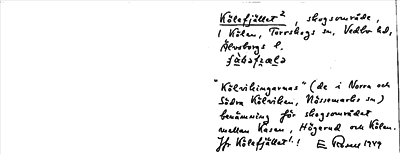 Kölefjället ², skogsområde,
i Kölen, Torrskogs sn, Vedbo hd,
Älvsborgs l.
"Kölvikingarnas" (de i Norra och
Södra Kölviken, Nössemarks sn)
benämning för skogsområdet
mellan Kasen, Högerud och Kölen.
Jfr Kölefjället ¹!
1949